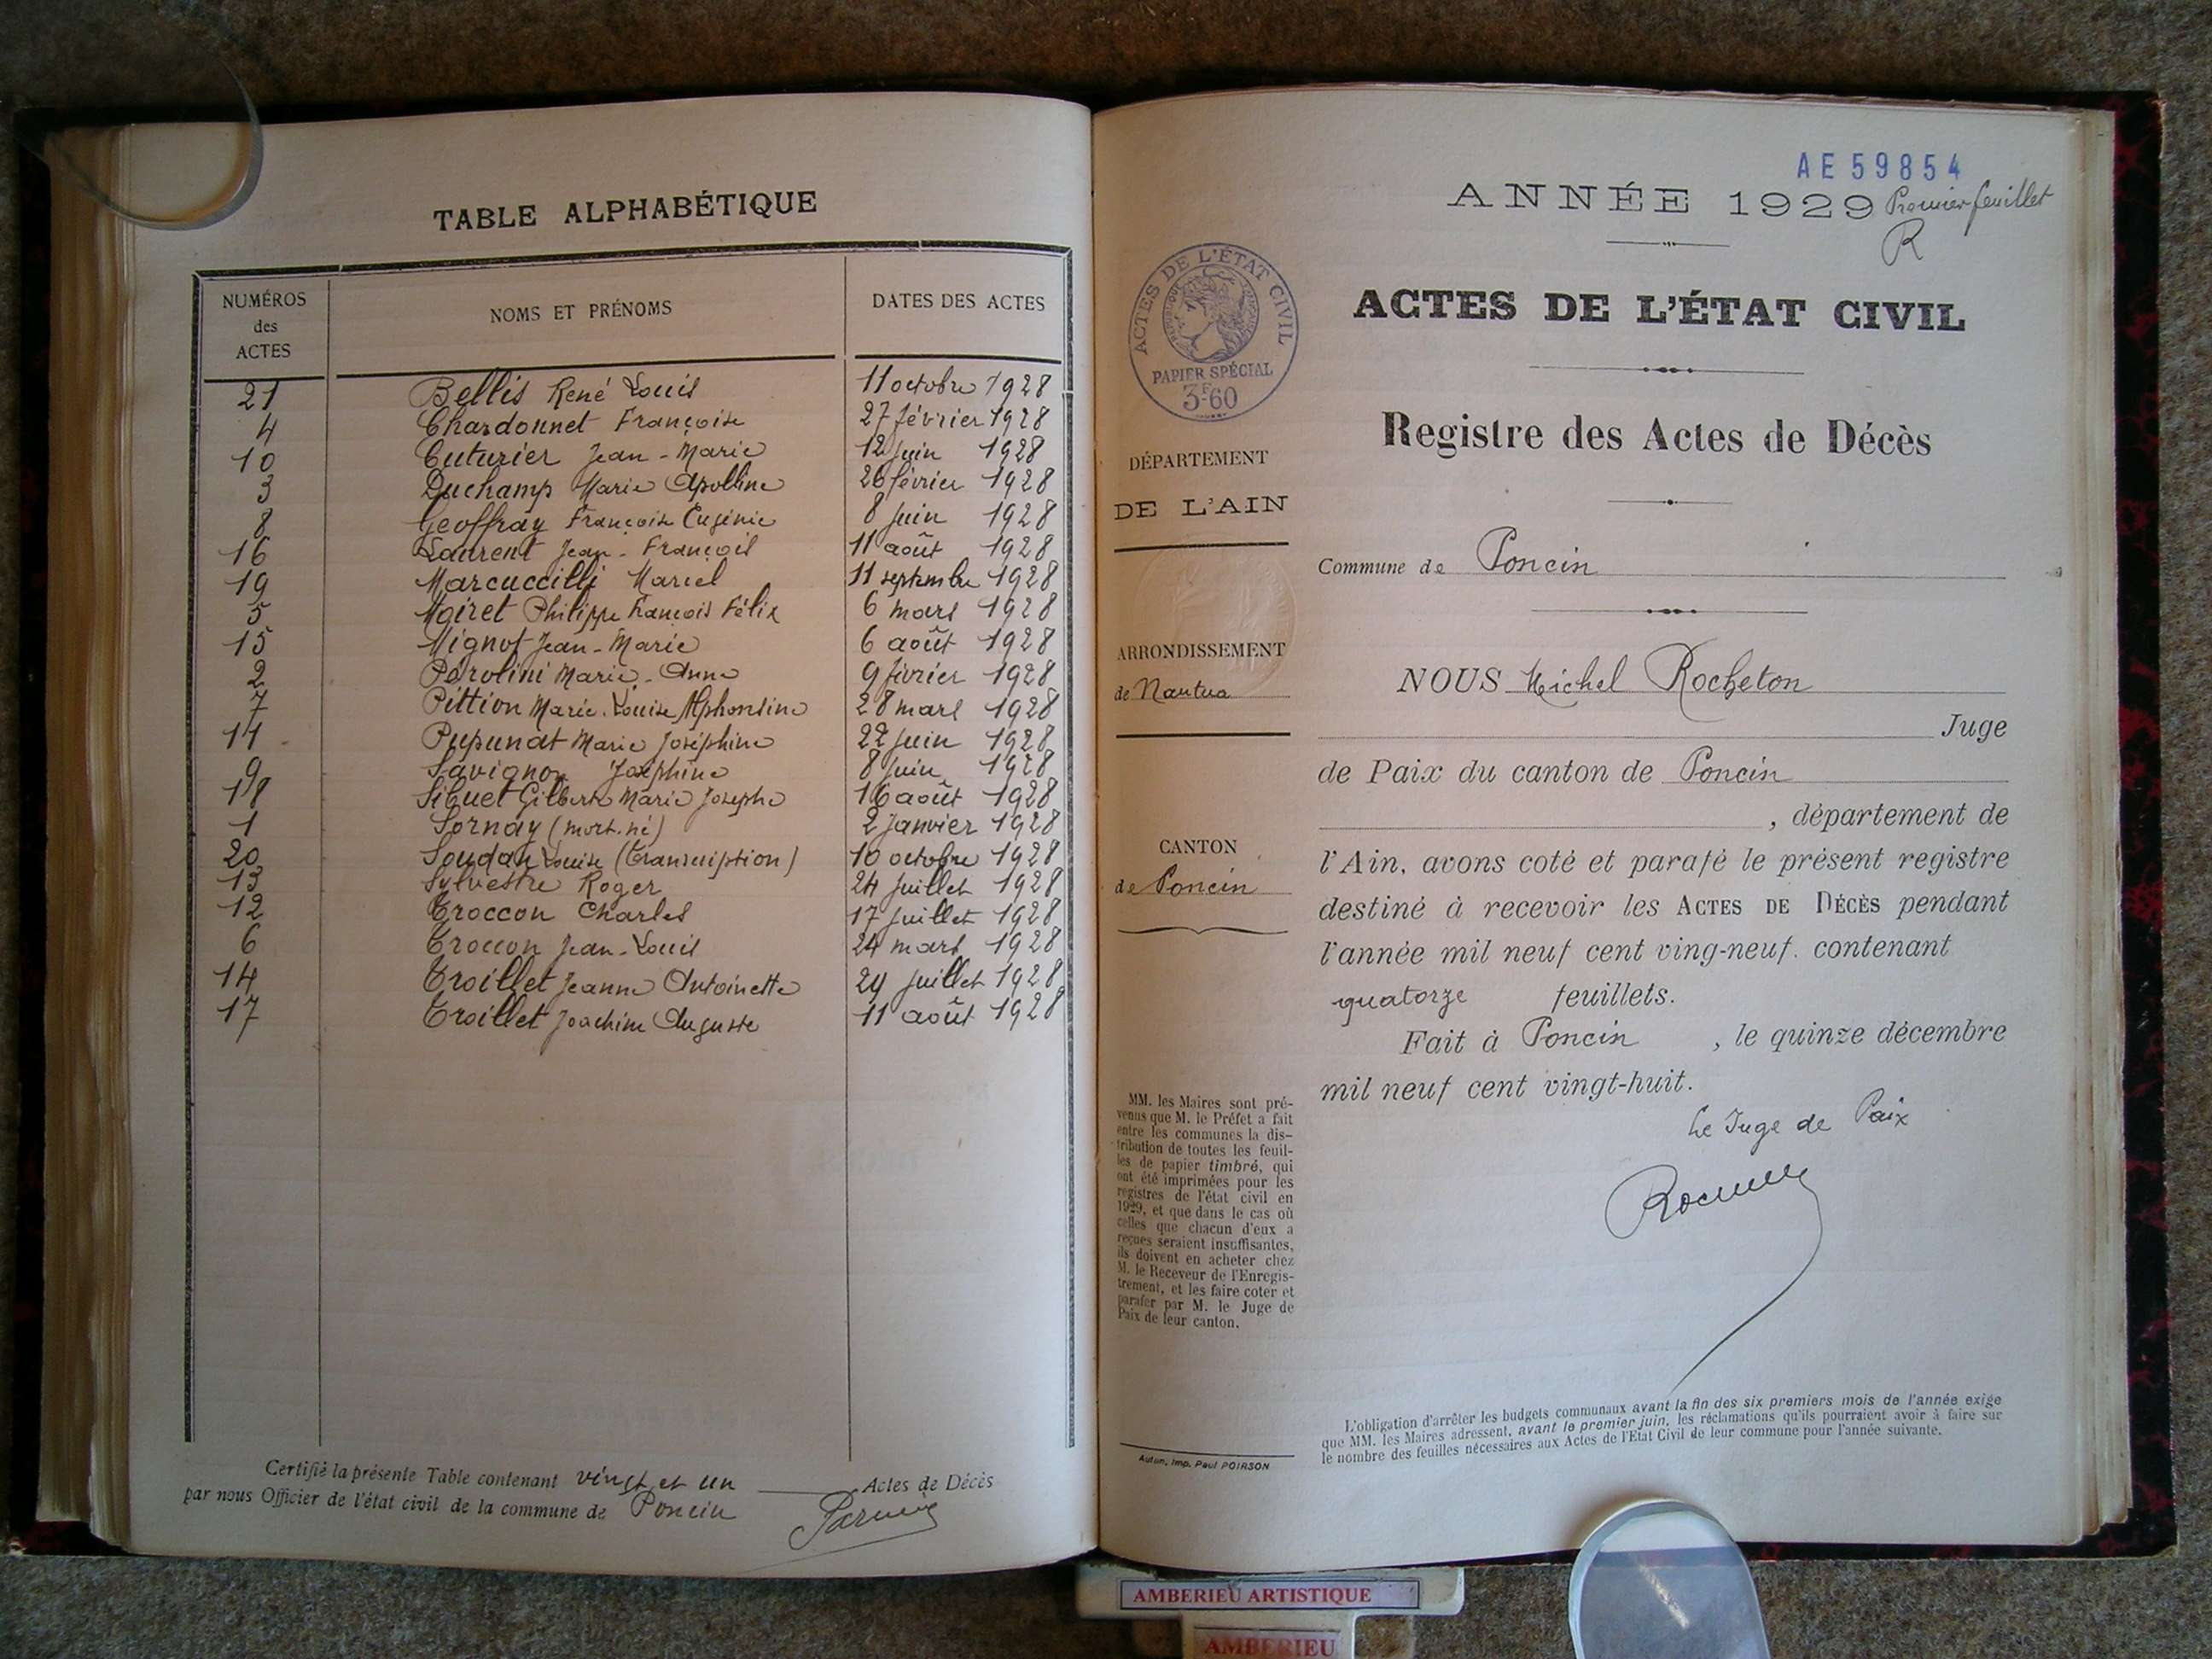 TABLE ALPHABÉTIQUE
NUMÉROS des ACTES NOMS ET PRÉNOMS DATES DES ACTES
21 Bellis René Louis 11 octobre 1928
4 Chardonnet Françoise 27 février 1928
10 Cuturier Jean-Marie 12 juin 1928
3 Duchamp Marie Apolline 26 février 1928
8 Geoffray Françoise Eugénie 8 juin 1928
16 Laurent Jean-François 11 août 1928
19 Marcuccilli Marcel 11 septembre 1928
5 Moiret Philippe François Félix 6 mars 1928
15 Mignot Jean-Marie 6 août 1928
2 Pérolini Marie-Anne 9 février 1928
7 Pittion Marie-Louise Alphonsine 28 mars 1928
11 Pupunat Marie Joséphine 22 juin 1928
9 Savignon Joséphine 8 juin 1928
18 Sibuet Gilberte Marie Josephe 16 août 1928
1 Sornay (mort-né) 2 janvier 1928
20 Soudan Louise (transcription) 10 octobre 1928
13 Sylvestre Roger 24 juillet 1928
12 Troccon Charles 17 juillet 1928
6 Troccon Jean-Louis 24 mars 1928
14 Troillet Jeanne Antoinette 24 juillet 1928
17 Troillet Joachim Auguste 11 août 1928
Certifié la présente Table contenant vingt et un Actes de Décès
par nous Officier de l'état civil de la commune de Poncin
AE 59854
ANNÉE 1929 Premier feuillet
R
ACTES DE L'ÉTAT CIVIL
PAPIER SPÉCIAL
3F60
DÉPARTEMENT
DE L'AIN
ARRONDISSEMENT
de Nantua
CANTON
de Poncin
MM. les Maires sont pré-
venus que M. le Préfet a fait
entre les communes la dis-
tribution de toutes les feuil-
les de papier timbré, qui
ont été imprimées pour les
registres de l'état civil en
1929, et que dans le cas où
celles que chacun d'eux a
reçues seraient insuffisantes,
ils doivent en acheter chez
M. le Receveur de l'Enregis-
trement, et les faire coter et
parafer par M. le Juge de
Paix de leur canton.
Autun, Imp. Paul POIRSON
ACTES DE L'ÉTAT CIVIL
Registre des Actes de Décès
Commune de Poncin
NOUS Michel Rocheton
Juge
de Paix du canton de Poncin
, département de
l'Ain, avons coté et parafé le présent registre
destiné à recevoir les ACTES DE DÉCÈS pendant
l'année mil neuf cent ving-neuf. contenant
quatorze feuillets.
Fait à Poncin , le quinze décembre
mil neuf cent vingt-huit.
Le Juge de Paix
L'obligation d'arrêter les budgets communaux avant la fin des six premiers mois de l'année exige
que MM. les Maires adressent, avant le premier juin, les réclamations qu'ils pourraient avoir à faire sur
le nombre des feuilles nécessaires aux Actes de l'Etat Civil de leur commune pour l'année suivante.
AMBERIEU ARTISTIQUE
AMBERIEU